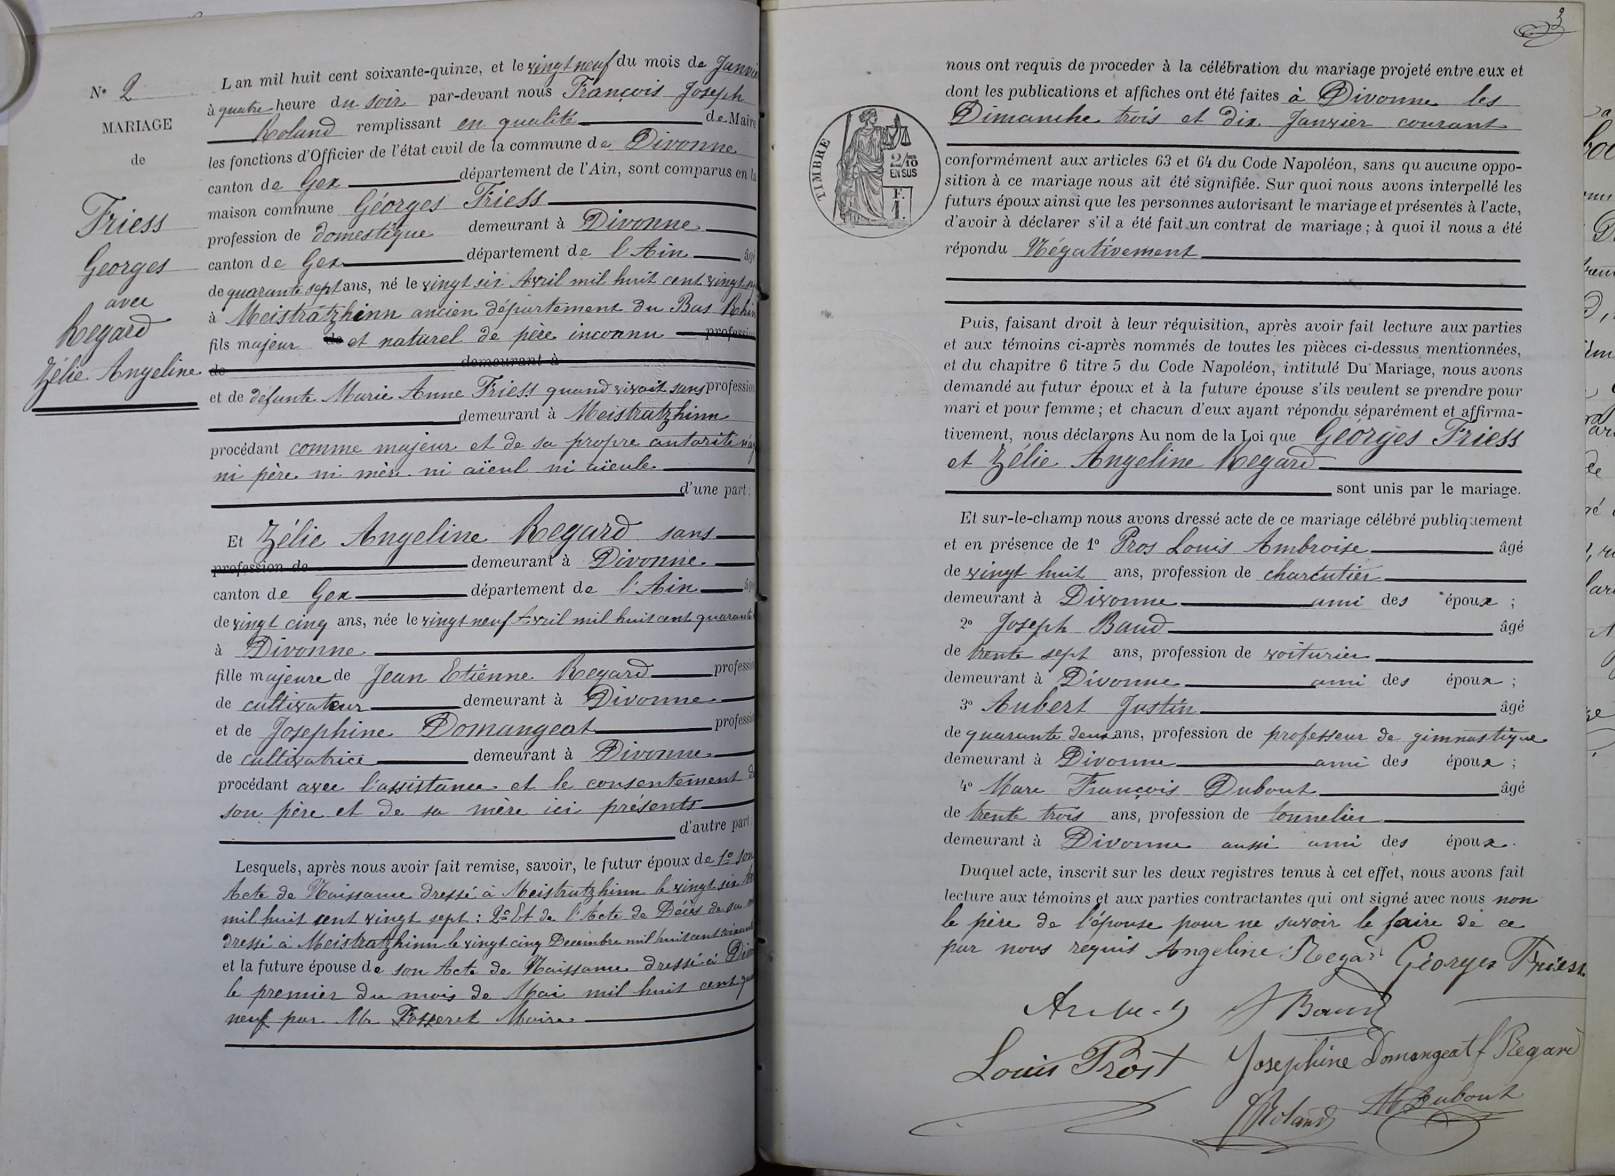 N° 2
MARIAGE
de
Friess
Georges
avec
Regard
Zélie Angeline
L an mil huit cent soixante-quinze, et le vingt neuf du mois de Janvi
à quatre heure du soir par-devant nous François Joseph
Roland remplissant en qualité de Maire
les fonctions d'Officier de l'état civil de la commune de Divonne
canton de Gex département de l'Ain, sont comparus en la
maison commune Géorges Friess
profession de domestique demeurant à Divonne
canton de Gex département de l'Ain âgé
de quarante sept ans, né le vingt six Avril mil huit cent vingt
à Meistratzheinn ancien département du Bas Rhin
fils majeur de et naturel de père inconnu profession
de demeurant à
et de défunte Marie Anne Friess quand vivait sans profession
demeurant à Meistratzhinn
procédant comme majeur et de sa propre autorité
ni père ni mère ni aïeul ni aïeule
d'une part;
Et Zélie Angeline Regard sans
profession de demeurant à Divonne
canton de Gex département de l'Ain âgé
de vingt cinq ans, née le vingt neuf Avril mil huit cent quarante
à Divonne
fille majeure de Jean Etiénne Regard profession
de cultivateur demeurant à Divonne
et de Josephine Domangeat profession
de cultivatrice demeurant à Divonne
procédant avec l'assistance et le consentement de
son père et de sa mère ici présents
d'autre part
Lesquels, après nous avoir fait remise, savoir, le futur époux de 1° son
Acte de Naissance dressé à Meistratzhinn le vingt six
mil huit cent vingt sept: 2° Et de l'Acte de Décès de sa
dressé à Meistratzhinn le vingt cinq Decembre mil huit cent
et la future épouse de son Acte de Naissance dressé à Divo
le premier du mois de Mai mil huit cent
neuf par Mr Fosseret Maire
3
nous ont requis de proceder à la célébration du mariage projeté entre eux et
dont les publications et affiches ont été faites à Divonne les
Dimanche trois et dix Janvier courant
TIMBRE
2/10 EN SUS
F. 1.
conformément aux articles 63 et 64 du Code Napoléon, sans qu aucune oppo-
sition à ce mariage nous ait été signifiée. Sur quoi nous avons interpellé les
futurs époux ainsi que les personnes autorisant le mariage et présentes à l'acte,
d'avoir à déclarer s'il a été fait un contrat de mariage; à quoi il nous a été
répondu Négativement
Puis, faisant droit à leur réquisition, après avoir fait lecture aux parties
et aux témoins ci-après nommés de toutes les pièces ci-dessus mentionnées,
et du chapitre 6 titre 5 du Code Napoléon, intitulé Du Mariage, nous avons
demandé au futur époux et à la future épouse s'ils veulent se prendre pour
mari et pour femme; et chacun d'eux ayant répondu séparément et affirma-
tivement, nous déclarons Au nom de la Loi que Georges Friess
et Zélie Angeline Regard
sont unis par le mariage.
Et sur-le-champ nous avons dressé acte de ce mariage célébré publiquement
et en présence de 1° Pros Louis Ambroise âgé
de vingt huit ans, profession de charcutier
demeurant à Divonne ami des époux;
2° Joseph Baud âgé
de trente sept ans, profession de voiturier
demeurant à Divonne ami des époux;
3° Aubert Justin âgé
de quarante deux ans, profession de professeur de gimnastique
demeurant à Divonne ami des époux;
4° Marc François Dubout âgé
de trente trois ans, profession de tonnelier
demeurant à Divonne aussi ami des époux.
Duquel acte, inscrit sur les deux registres tenus à cet effet, nous avons fait
lecture aux témoins et aux parties contractantes qui ont signé avec nous non
le père de l'épouse pour ne savoir le faire de ce
par nous requis Angeline Regard Géorges Friess
J Baud
Louis Prost Josephine Domangeat f Regard
JRoland M Dubout